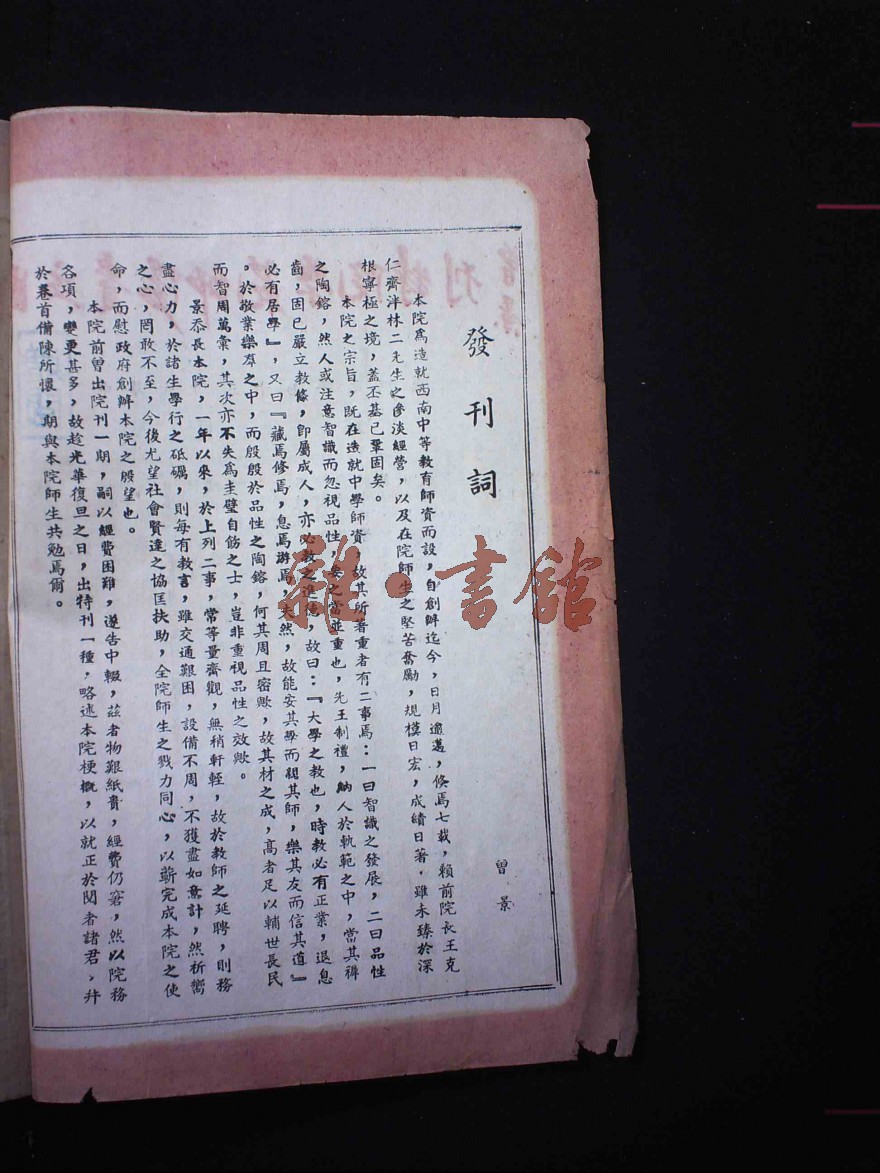 發刊詞
曾景
本院爲造就西南中等教育師資而設，自創辦迄今，日月遄邁，倏焉七載，賴前院長王克
仁齊泮林二先生之參淡經營，以及在院師生之堅苦奮勵，規模日宏，成績日著，雖未臻於深
根寧極之境，蓋丕基已鞏固矣。
本院之宗旨，既在造就中學師資，故其所著重者有二事焉：一曰智識之發展，二曰品性
之陶鎔，然人或注意智識而忽視品性，要之當並重也，先王制禮，納人於軌範之中，當其稚
齒，固已嚴立教條，卽屬成人，亦必教之進德，故曰：『大學之教也，時教必有正業，退息
必有居學』，又曰『藏焉修焉，息焉游焉，夫然，故能安其學而親其師，樂其友而信其道』
。於敬業樂羣之中，而殷殷於品性之陶鎔，何其周且密歟，故其材之成，高者足以輔世長民
而智周萬彙，其次亦不失爲圭璧自飭之士，豈非重視品性之效歟。
景忝長本院，一年以來，於上列二事，常等量齊觀，無稍軒輊，故於教師之延聘，則務
盡心力，於諸生學行之砥礪，則每有教言，雖交通艱困，設備不周，不獲盡如意計，然祈嚮
之心，罔敢不至，今後尤望社會賢達之協匡扶助，全院師生之戮力同心，以蘄完成本院之使
命，而慰政府創辦本院之殷望也。
本院前曾出院刊一期，嗣以經費困難，遂告中輟，茲者物艱紙貴，經費仍窘，然以院務
各項，變更甚多，故趁光華復旦之日，出特刊一種，略述本院梗概，以就正於閱者諸君，幷
於卷首備陳所懷，期與本院師生共勉焉爾。
雜·書館